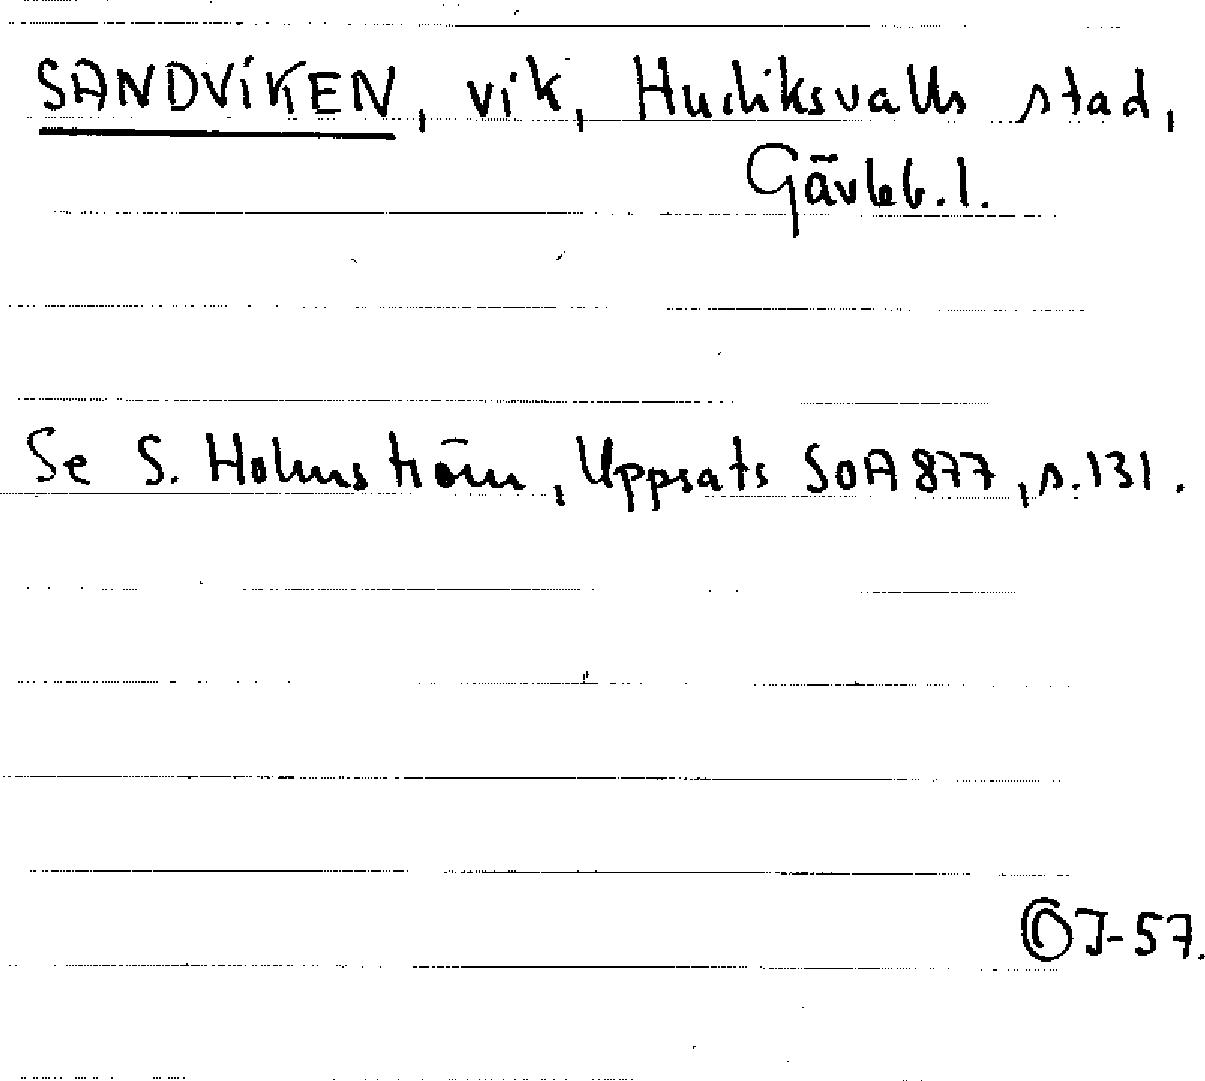 SANDVIKEN, vik, Hudiksvalls stad,
Gävleb.l.
Se S. Holmström, Uppsats SOA 877, s.131.
OJ-57.